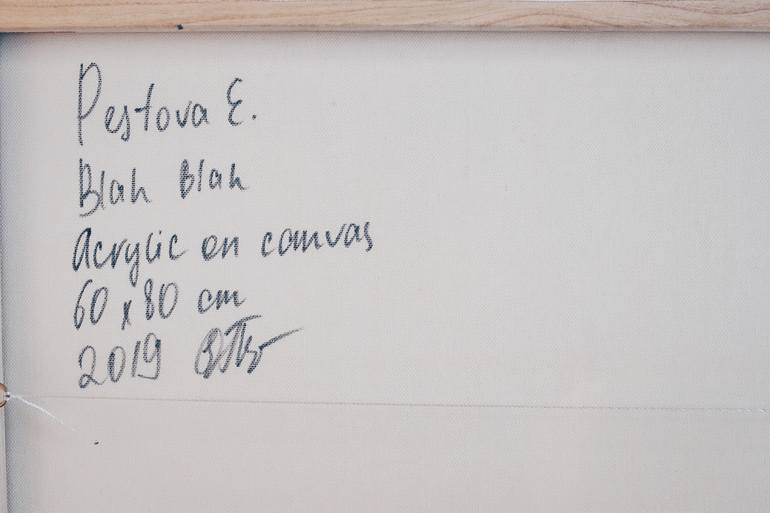 Pestova E.
Blah Blah
Acrylic on canvas
60 x 80 cm
2019